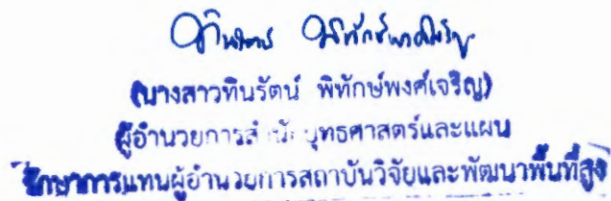 ทินรัตน์ พิทักษ์พงศ์เจริญ
(นางสาวทินรัตน์ พิทักษ์พงศ์เจริญ)
ผู้อำนวยการสำนักยุทธศาสตร์และแผน
รักษาการแทนผู้อำนวยการสถาบันวิจัยและพัฒนาพื้นที่สูง